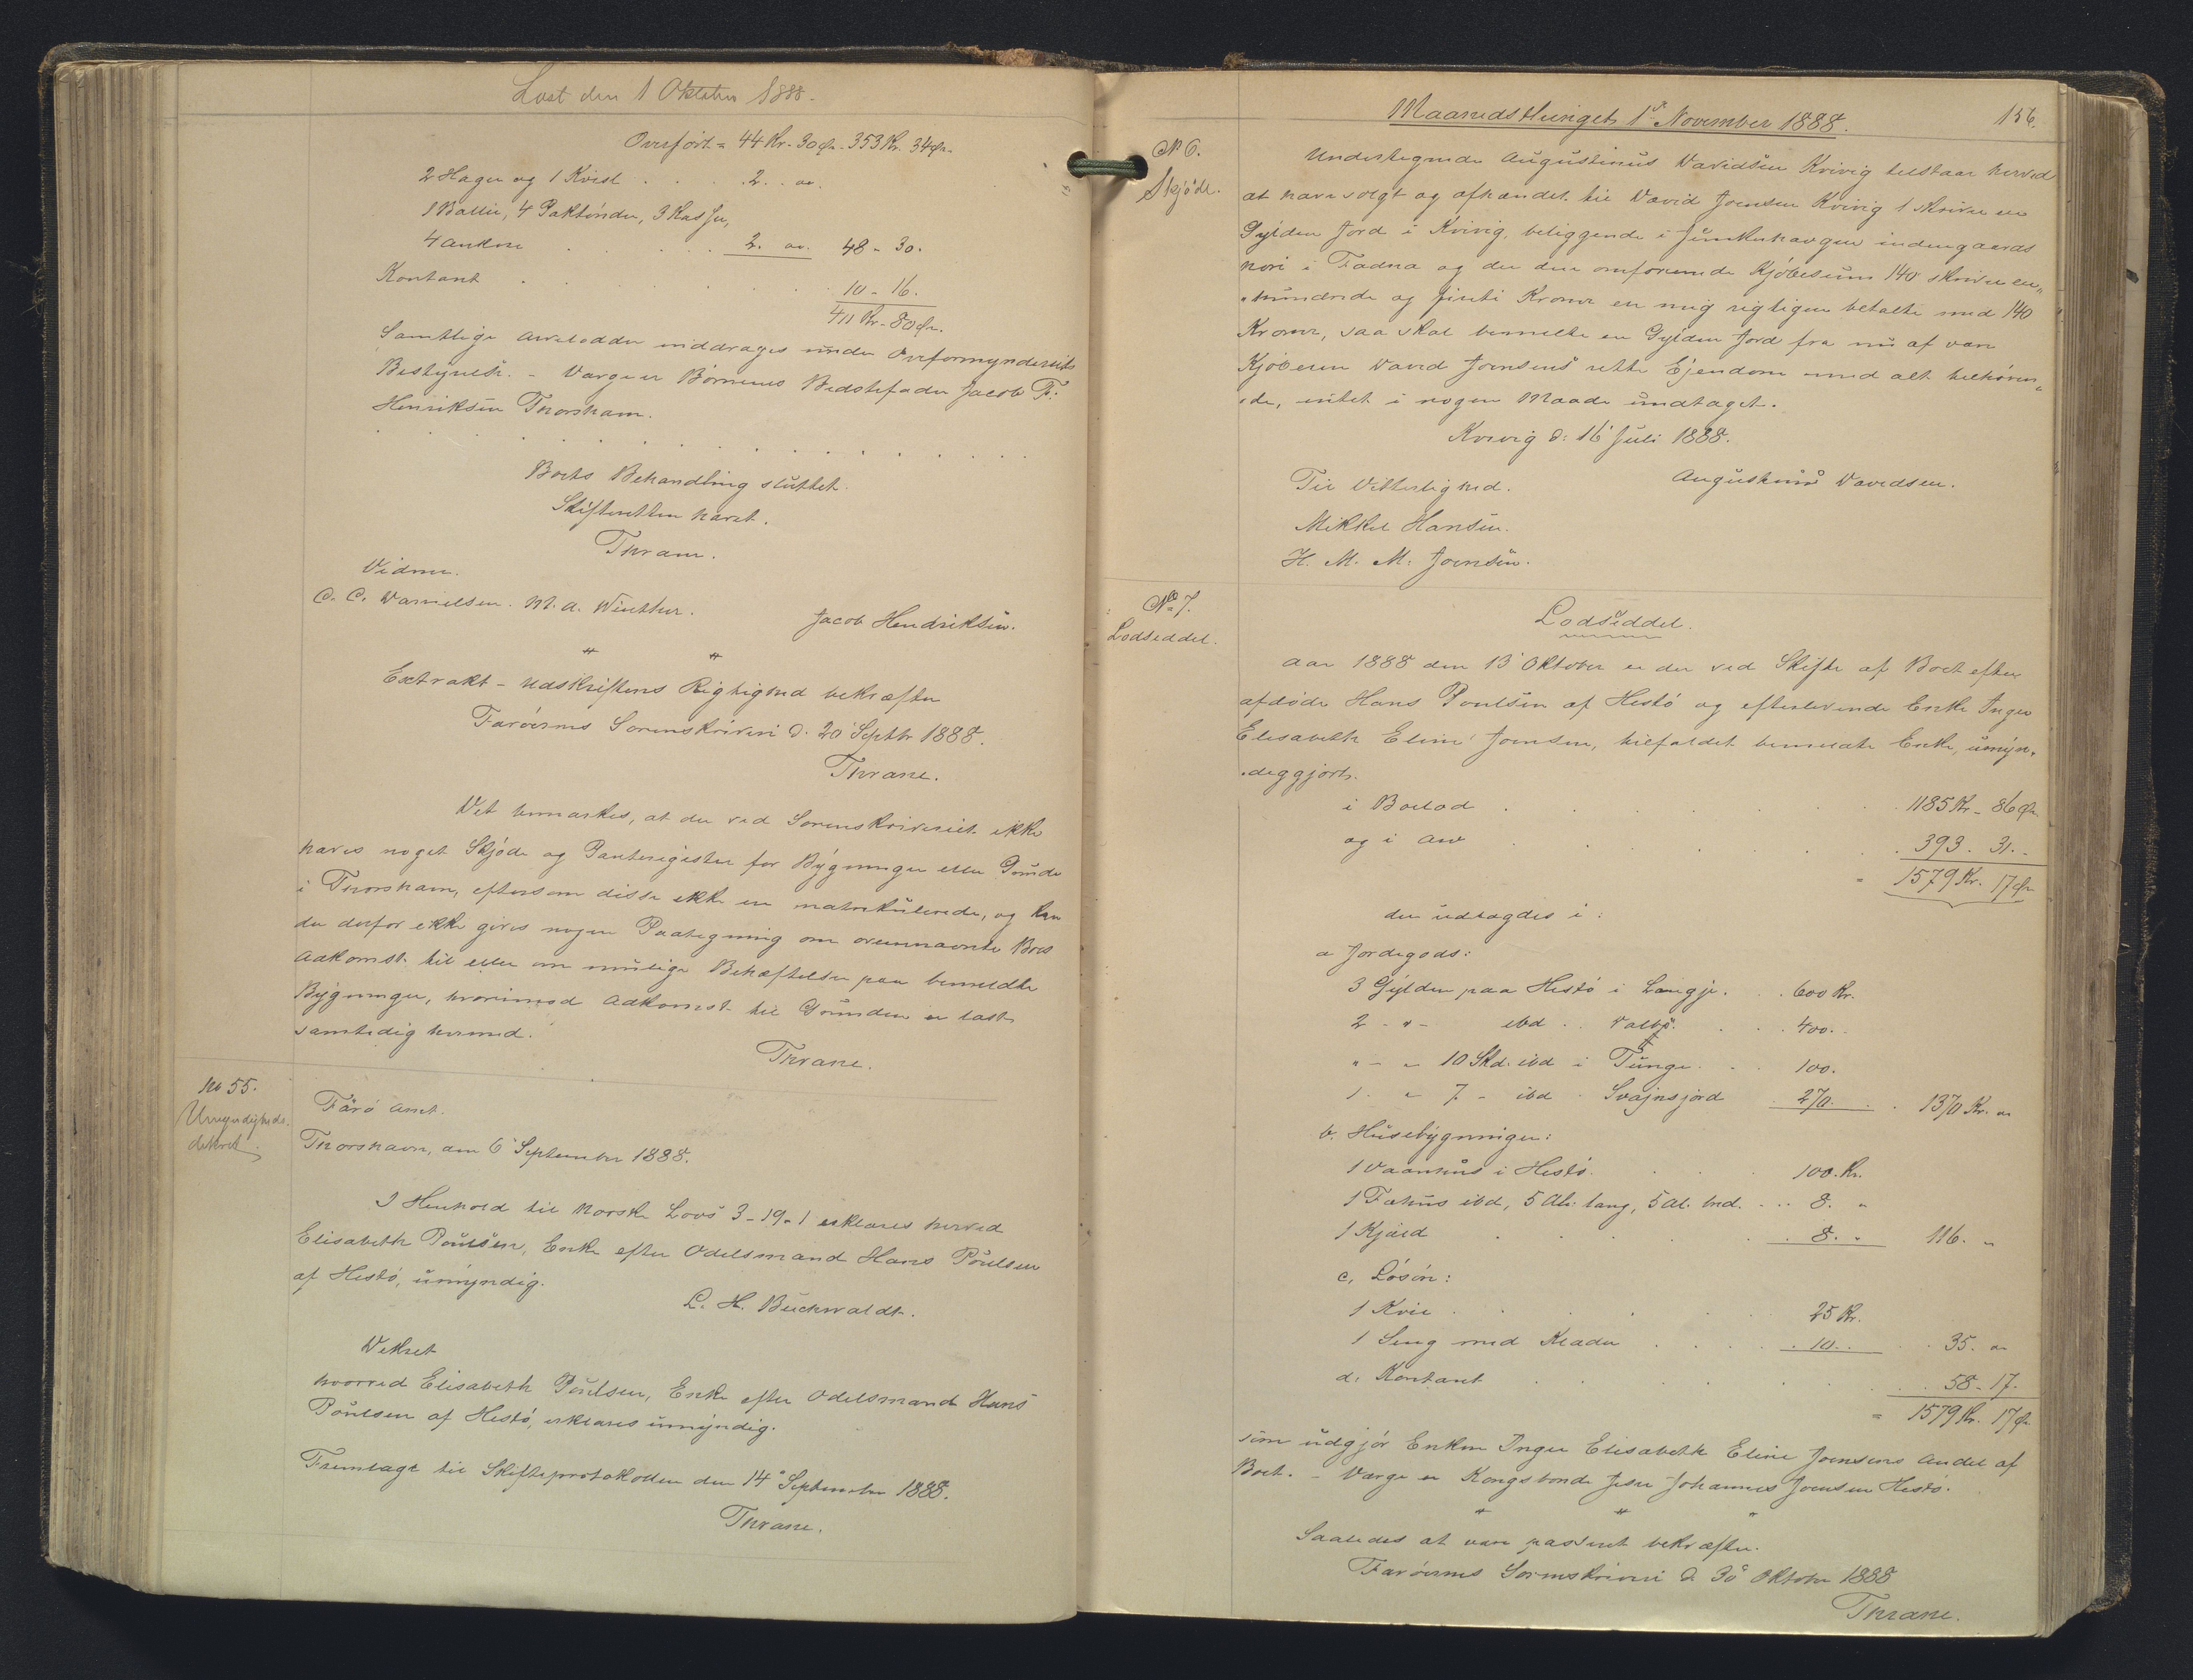 Læst den 1 Oktober 1888.
Overført = 44 Kr. 30 Ø. 353 Kr. 34 Ø.
2 Hager og 1 Kvist . . . 2. "
1 Ballie, 4 Paktønder, 3 Kasser,
4 Ankre . . . 2. " 48 - 30.
Kontant . . . 10 - 16.
411 Kr. 80 Ør.
Samtlige Arvelodder inddrages under Overformynderiets
Bestyrelse. - Værge er Børnenes Bedstefader Jacob F.
Henriksen Thorshavn.
Boets Behandling sluttet.
Skifteretten hævet.
Thrane.
Vidner.
C. C. Danielsen. M. A. Winther.
Jacob Hendriksen.
" "
Extrakt-Udskriftens Rigtighed bekræfter
Færøernes Sorenskriveri d. 20 Septbr 1888.
Thrane.
Det bemærkes, at der ved Sorenskriveriet ikke
haves noget Skjøde og Panteregister for Bygninger eller Grunde
i Thorshavn, eftersom disse ikke ere matrikulerede, og kan
der derfor ikke gives nogen Paategning om ovennævnte Boes
Adkomst til eller om mulige Behæftelser paa bemeldte
Bygninger, hvorimod Adkomst til Grunden er læst
samtidig hermed.
Thrane.
No 55.
Umyndigheds-
dekret.
Færø Amt.
Thorshavn, den 6 September 1888.
I Henhold til Norske Lovs 3-19-1 erklæres herved
Elisabeth Poulsen, Enke efter Odelsmand Hans Poulsen
af Hestø, umyndig.
L. H. Buchwaldt.
Dekret
hvorved Elisabeth Poulsen, Enke efter Odelsmand Hans
Poulsen af Hestø, erklæres umyndig.
Fremlagt til Skifteprotokollen den 14 September 1888.
Thrane.
Maanedsthinget 1st November 1888.
156.
No 6.
Skjøde.
Undertegnede Augustinus Davidsen Kvivig tilstaar herved
at have solgt og afhændet til David Joensen Kvivig 1 skriver en
Gylden Jord i Kvivig, beliggende i indengaards
hori i Fadna og da den omforenede Kjøbesum 140 skriver en„
„hundrede og firti Kroner er mig rigtigen betalte med 140
Kroner, saa skal bemeldte en Gylden Jord fra nu af være
Kjøberen David Joensens rette Ejendom med alt tilhøren„
„de, intet i nogen Maade undtaget.
Kvivig d: 16 Juli 1888.
Augustinus Davidsen.
Til Vitterlighed.
Mikkel Hansen.
H. M. M. Joensen.
No 7.
Lodseddel.
Lodseddel.
Aar 1888 den 13 Oktober er der ved Skifte af Boet efter
afdøde Hans Poulsen af Hestø og efterlevende Enke Inger
Elisabeth Eline Joensen, tilfaldet bemeldte Enke, umyn„
„diggjort.
i Boslod . . . 1185 Kr. 86 Ør.
og i Arv . . . 393. 31.
= 1579 Kr. 17 Ør
der udlagdes i:
a Jordegods:
3 Gylden paa Hestø i Langje. . . 600 Kr.
2 - " - ibd . . Valbø. . . 400.
" - " 10 Skd. ibd i Tunge . . 100.
1 " 7 - ibd . Svajnsjord . 270. . . 1370 Kr. "
b. Husebygninger:
1 Vaanhus i Hestø. . . 100. Kr.
1 Fæhus ibd, 5 Al. lang, 5 Al. bred. . . 8. "
1 Kjæld . . . 8. " 116. "
c. Løsøre:
1 Kvie . . . 25 Kr.
1 Seng med Klæder . . . 10. . 35. "
d. Kontant . . . 58 - 17.
= 1579 Kr. 17 Ør
som udgjør Enken Inger Elisabeth Eline Joensens Andel af
Boet. - Værge er Kongsbonde Johannes Joensen Hestø.
" " "
Saaledes at være passeret bekræfter.
Færøernes Sorenskriveri d. 30 Oktober 1888
Thrane.